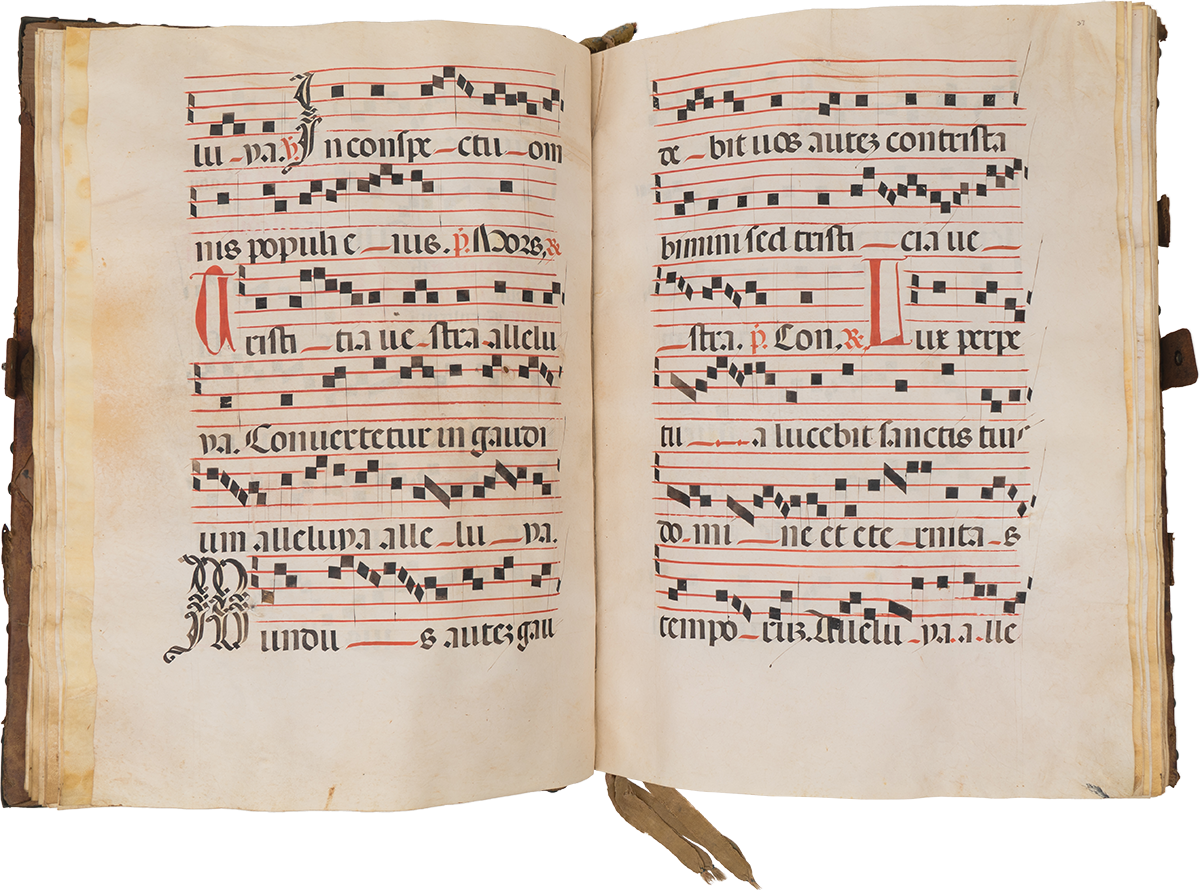 lu - ya. ℣. In conspe - ctu - om
nis populi e - ius. p. Mors. ℟
Tristi - tia ve - stra allelu
ya. Convertetur in gaudi
um alleluya alle - lu - ya.
Mundu - s autez gau
de - bit uos autez contrista
bimini sed tristi - cia ue -
- stra. p. Con. ℟. Lux perpe
tu - a lucebit sanctis tuis
do - mi - ne et ete - rnita - s
tempo - ruz. Allelu - ya. a - lle